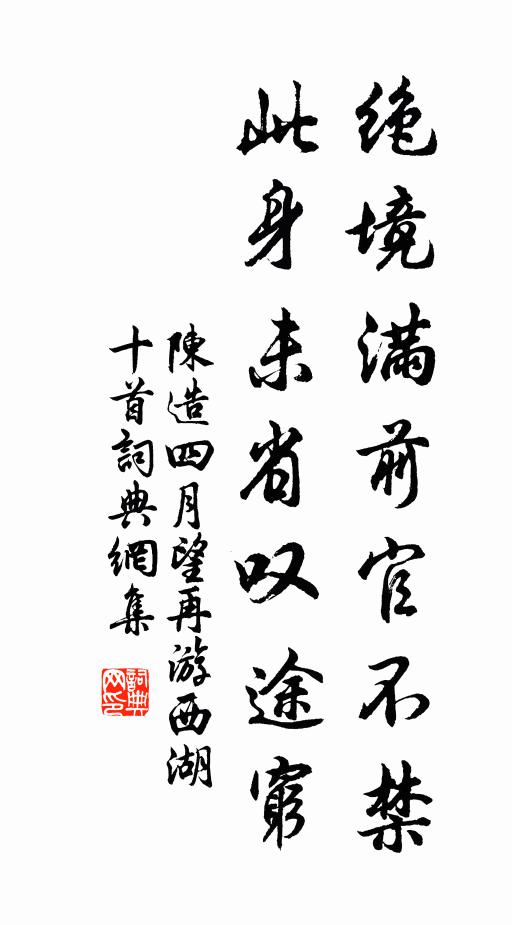 絶境滿前官不禁
此身未省叹途窮
陳造四月望再游西湖
十首詞典網集
詞典
网印